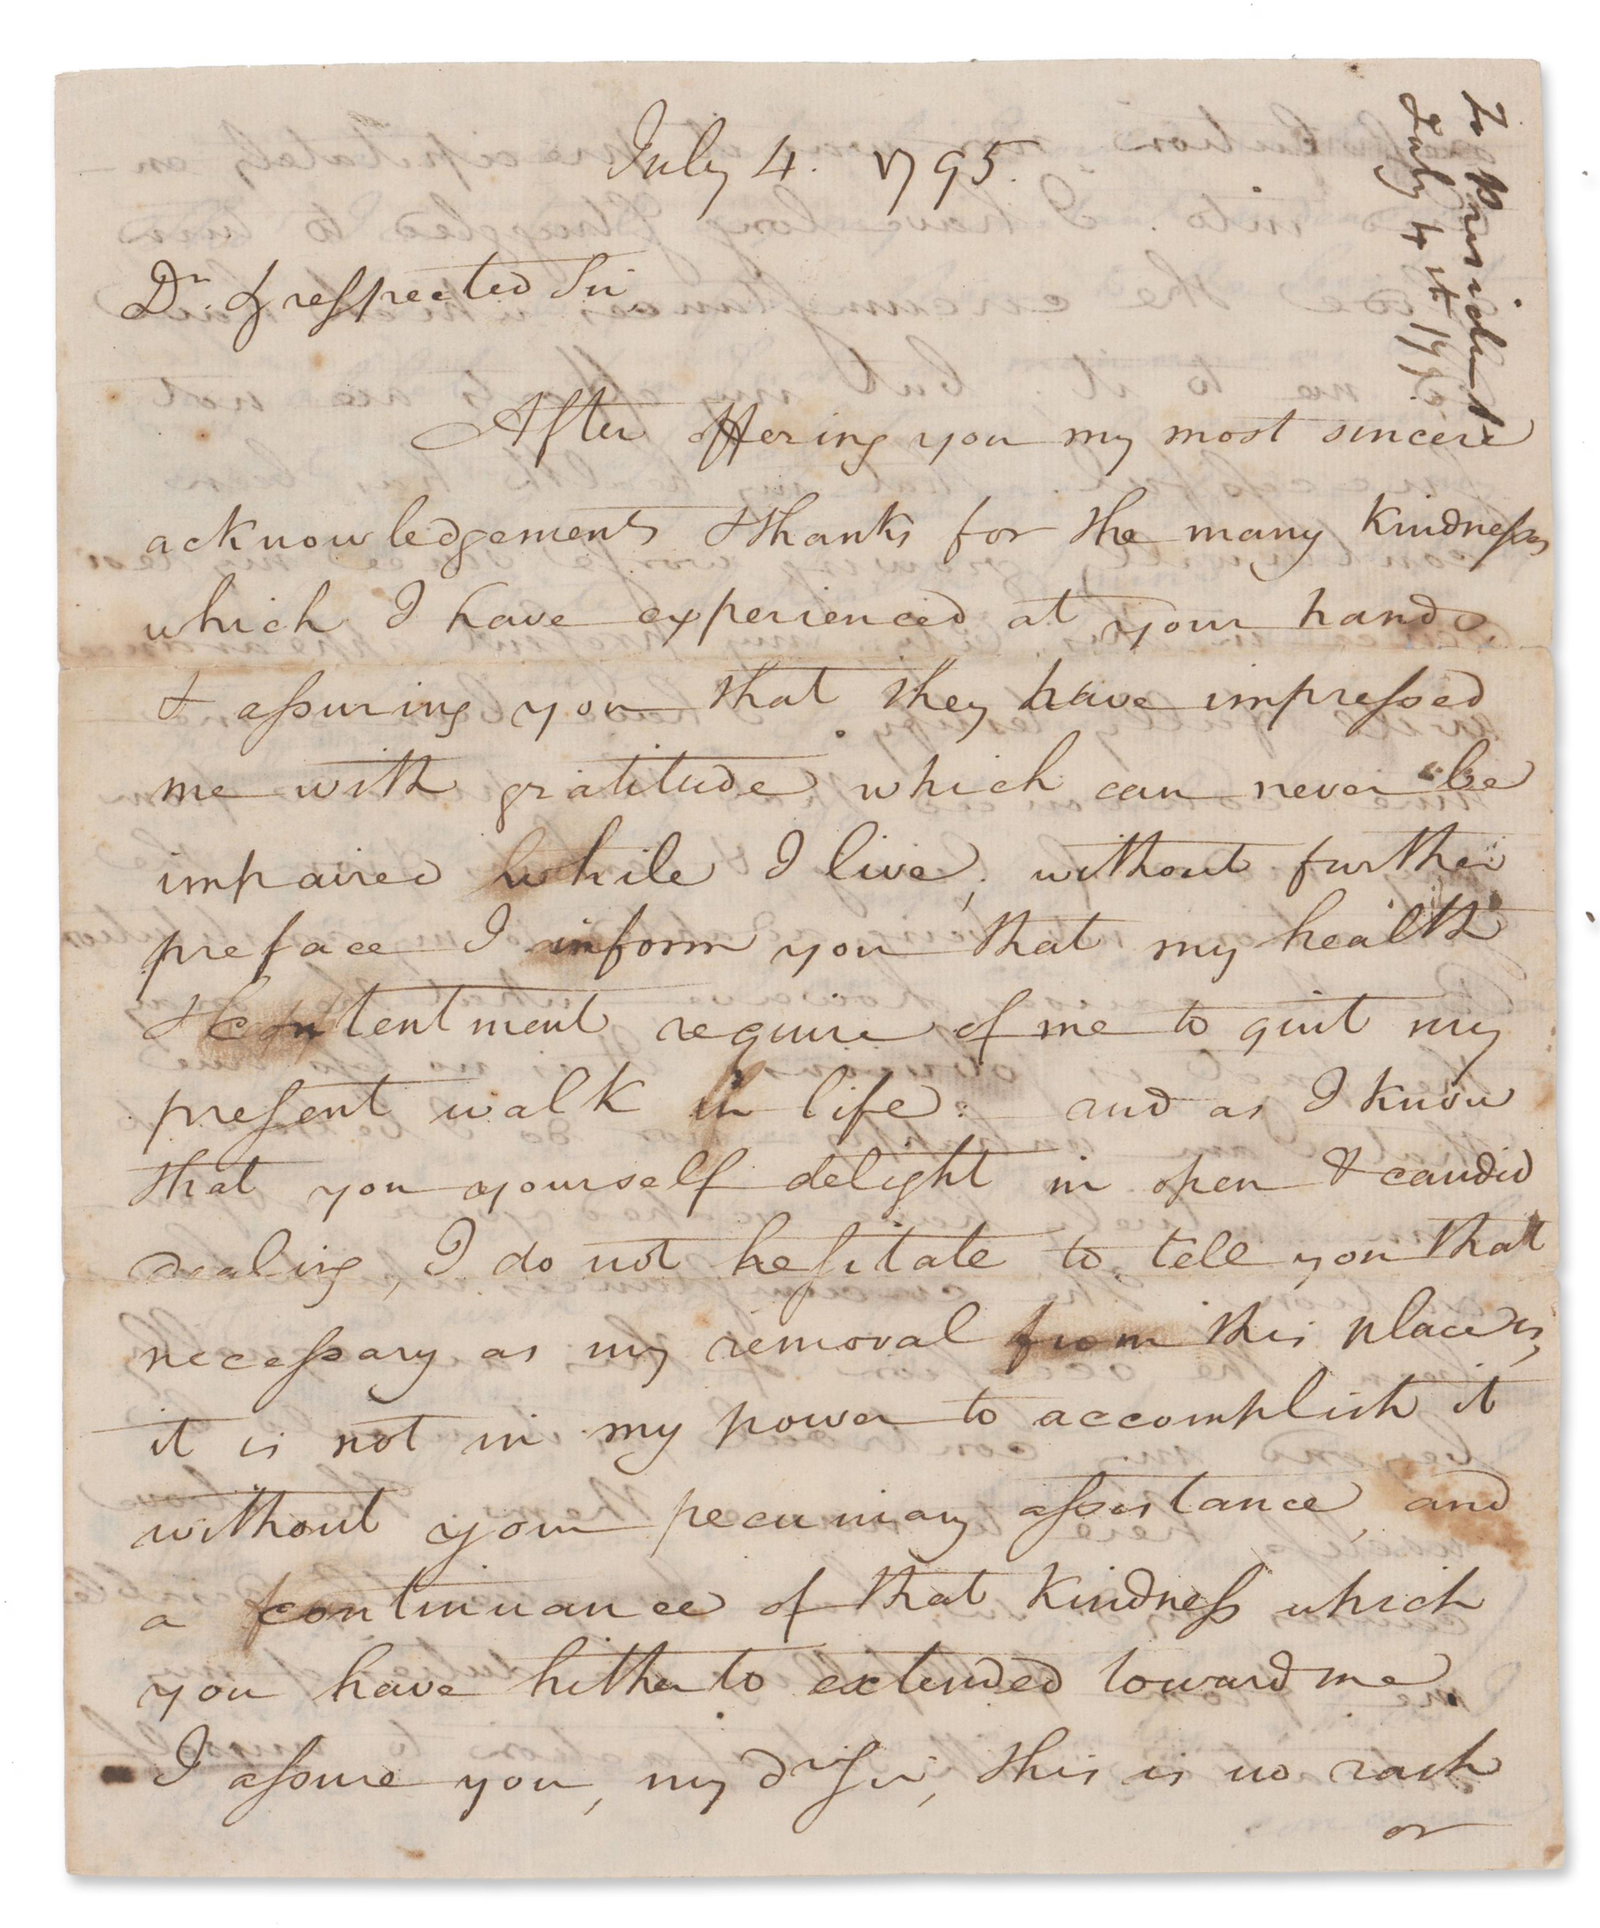 July 4. 1795.
To President
July 4th 1795
Dr. & respected Sir
After offering you my most sincere
acknowledgements & thanks for the many kindnesses
which I have experienced at your hands.
& assuring you that they have impressed
me with gratitude which can never be
impaired while I live, without further
preface I inform you that my health
& contentment require of me to quit my
present walk in life: and as I know
that you yourself delight in open & candid
dealing, I do not hesitate to tell you that
necessary as my removal from this place is,
it is not in my power to accomplish it
without your pecuniary assistance, and
a continuance of that kindness which
you have hitherto extended toward me.
I assure you, my dr. Sir, this is no rash
or